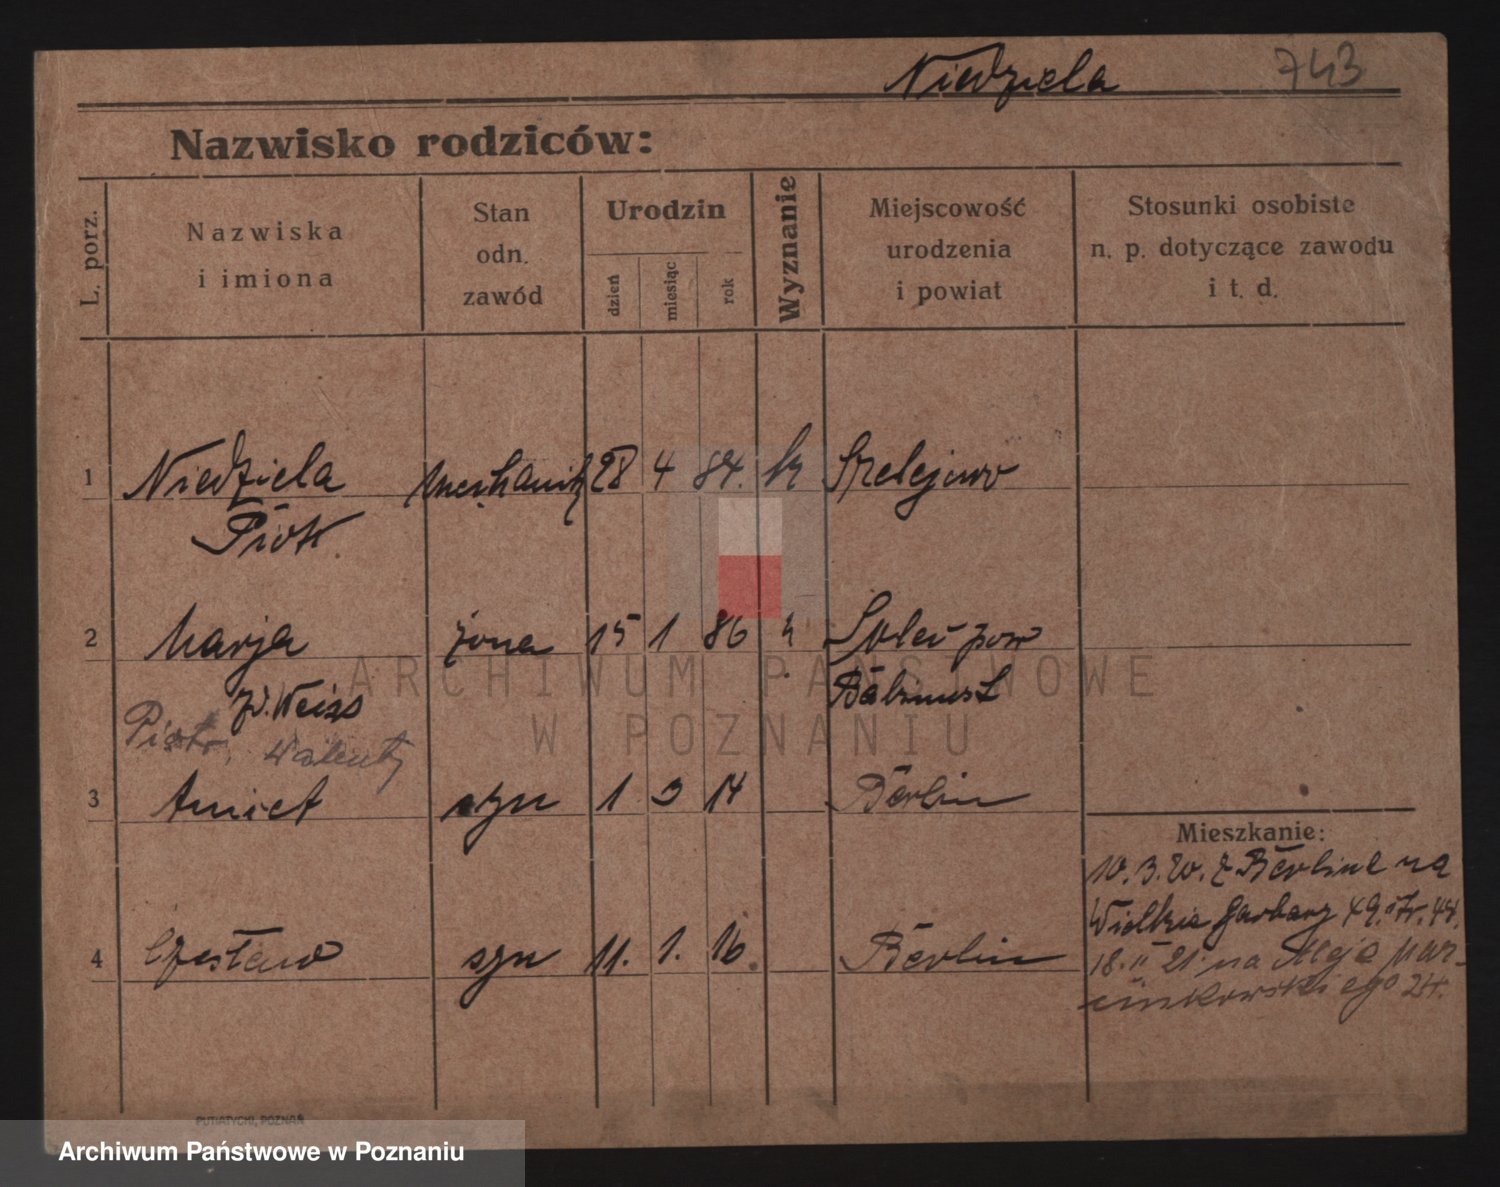 Niedziela 743
Nazwisko rodziców:
L. porz.
Nazwiska
i imiona
Stan
odn.
zawód
Urodzin
dzień
miesiąc
rok
Wyznanie
Miejscowość
urodzenia
i powiat
Stosunki osobiste
n. p. dotyczące zawodu
i t. d.
1 Niedziela mechanik 28 4 84. k
Piotr
2 Marja żona 15 1 86 k
ż. Weiss
Piotr, Walenty
3 syn 1 3 14 Berlin
Mieszkanie:
10.3.20. z Berlina na
Wielkie Garbary 49.
4 Czesław syn 11. 1. 16. Berlin
18.II 21 na Aleje Mar-
cinkowskiego 24.
ARCHIWUM PAŃSTWOWE
W POZNANIU
PUTIATYCKI, POZNAŃ
Archiwum Państwowe w Poznaniu